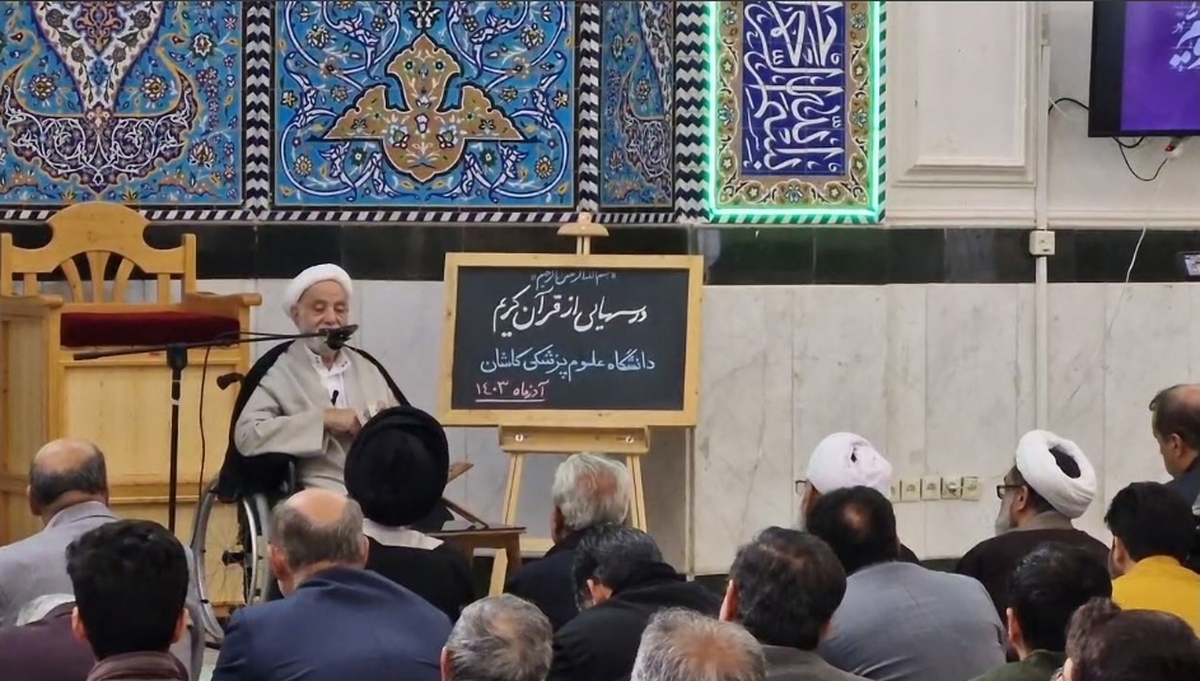 «بسم الله الرحمن الرحیم»
درسهایی از قرآن کریم
دانشگاه علوم پزشکی کاشان
آذرماه ۱۴۰۳